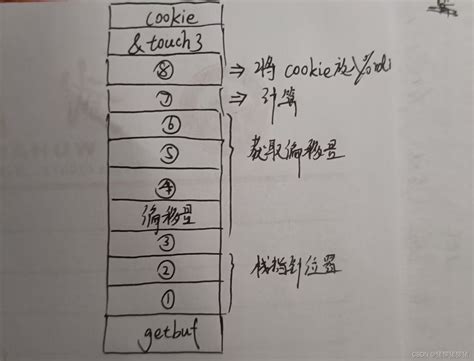 cookie
&touch3
⑧ ⇒ 将 cookie 放入%rdi
⑦ ⇒ 计算
⑥
⑤ 获取偏移量
④
偏移量
③
② 栈指针位置
①
getbuf